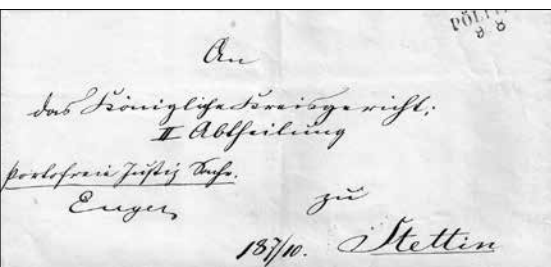 PÖLIT
8 8
An
das Königliche Kreisgericht;
II Abtheilung
portofreie Justiz Sache.
zu
187/10. Stettin